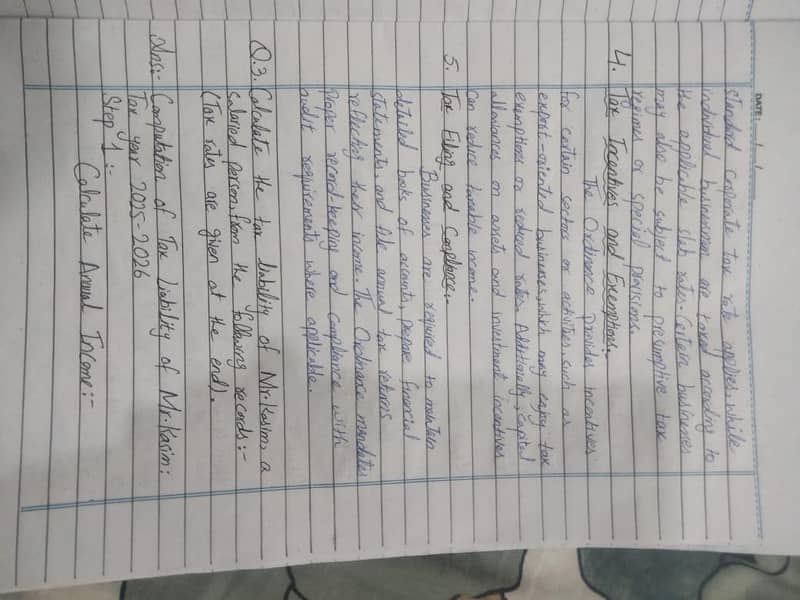 DATE:
standard corporate tax rate applies, while
individual businessmen are taxed according to
the applicable slab rates. Certain businesses
may also be subject to presumptive tax
regimes or special provisions.
4. Tax Incentives and Exemptions.
The Ordinance provides incentives
for certain sectors or activities, such as
export-oriented businesses, which may enjoy tax
exemptions or reduced rates. Additionally, capital
allowances on assets and investment incentives
can reduce taxable income.
5. Tax Filing and Compliance.
Businesses are required to maintain
detailed books of accounts, prepare financial
statements, and file annual tax returns
reflecting their income. The Ordinance mandates
proper record-keeping and compliance with
audit requirements where applicable.
Q.3. Calculate the tax liability of Mr. Kasim, a
salaried person, from the following records:-
(Tax rates are given at the end).
Ans:- Computation of Tax Liability of Mr. Kasim:
Tax year 2025-2026
Step 1:-
Calculate Annual Income:-